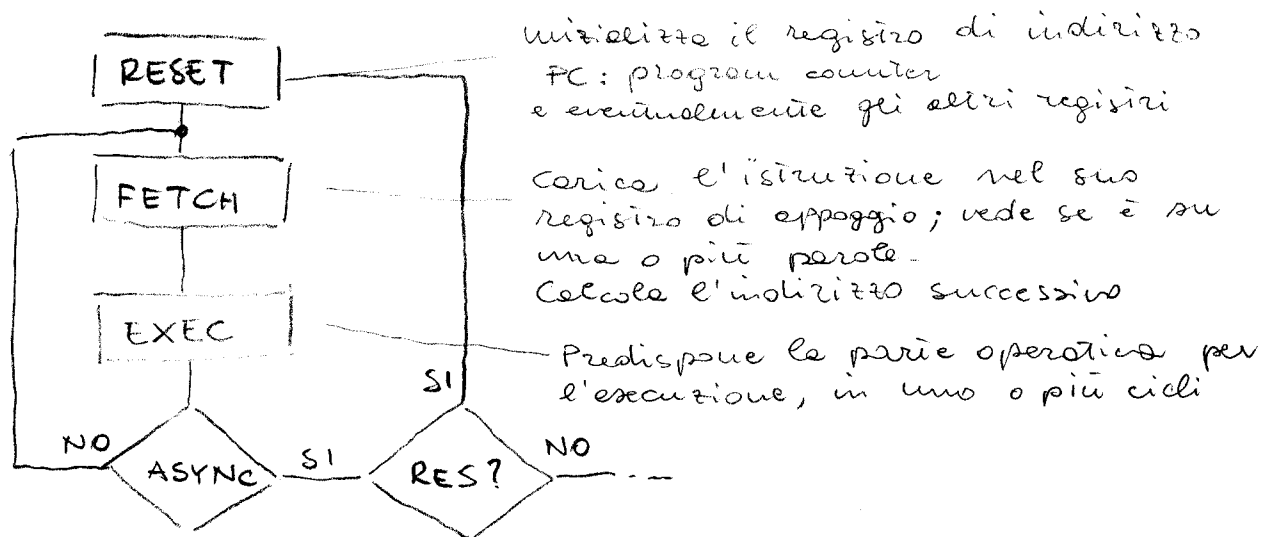 RESET
inizializza il registro di indirizzo
PC: program counter
e eventualmente gli altri registri
FETCH
carica l'istruzione nel suo
registro di appoggio; vede se è su
una o più parole.
Calcola l'indirizzo successivo
EXEC
Predispone la parte operativa per
l'esecuzione, in uno o più cicli
SI
NO
ASYNC
SI
RES?
NO